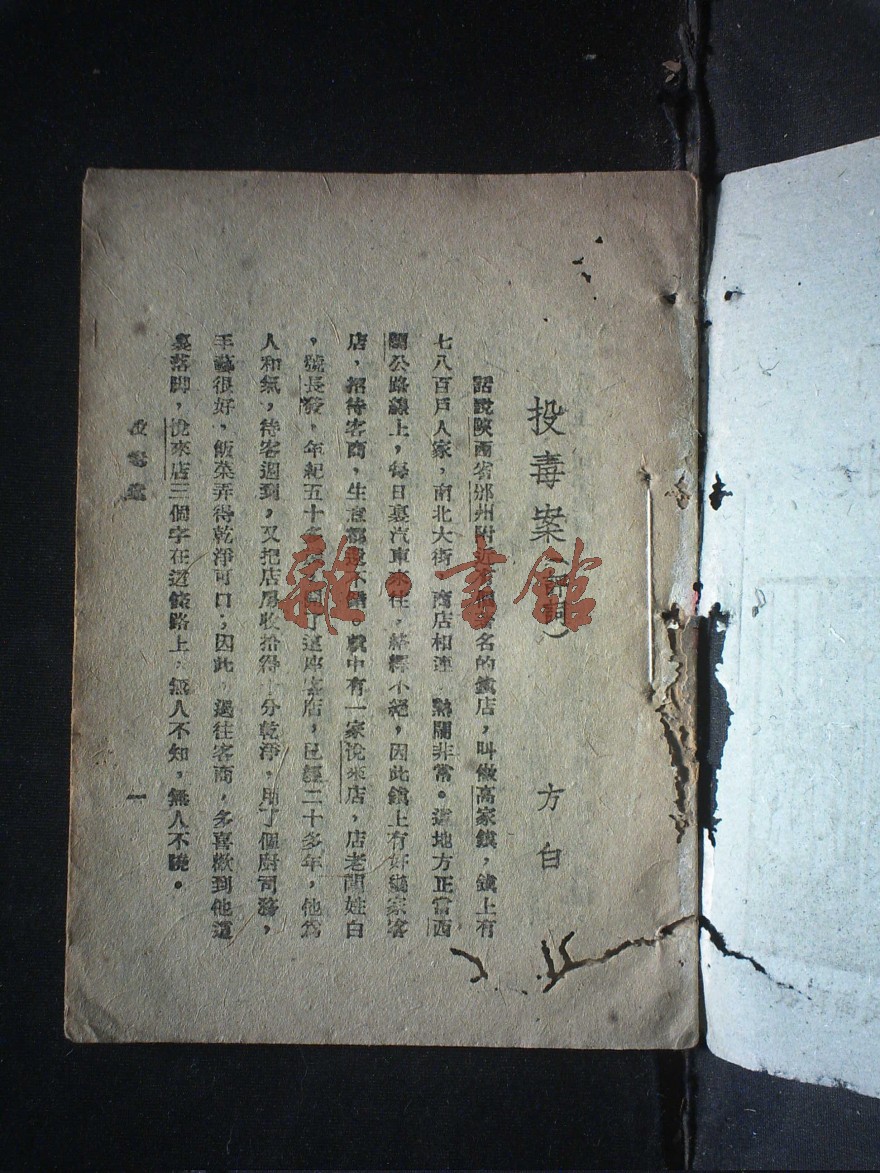 投毒案（評詞）
方白
話說陝西省邠州附近有個著名的鎮店，叫做高家鎮，鎮上有
七八百戶人家，南北大街，商店相連，熱鬧非常。這地方正當西
蘭公路綫上，每日裏汽車來往，絡繹不絕，因此鎮上有好幾家客
店，招待客商，生意都還不錯。就中有一家悅來店，店老闆姓白
，號長發，年紀五十多歲，開了這座客店，已經二十多年，他爲
人和氣，待客週到，又把店房收拾得十分乾淨，用了個廚司務，
手藝很好，飯菜弄得乾淨可口，因此，過往客商，多喜歡到他這
裏落脚，悅來店三個字在這條路上，無人不知，無人不曉。
投毒案
一
雜·書館